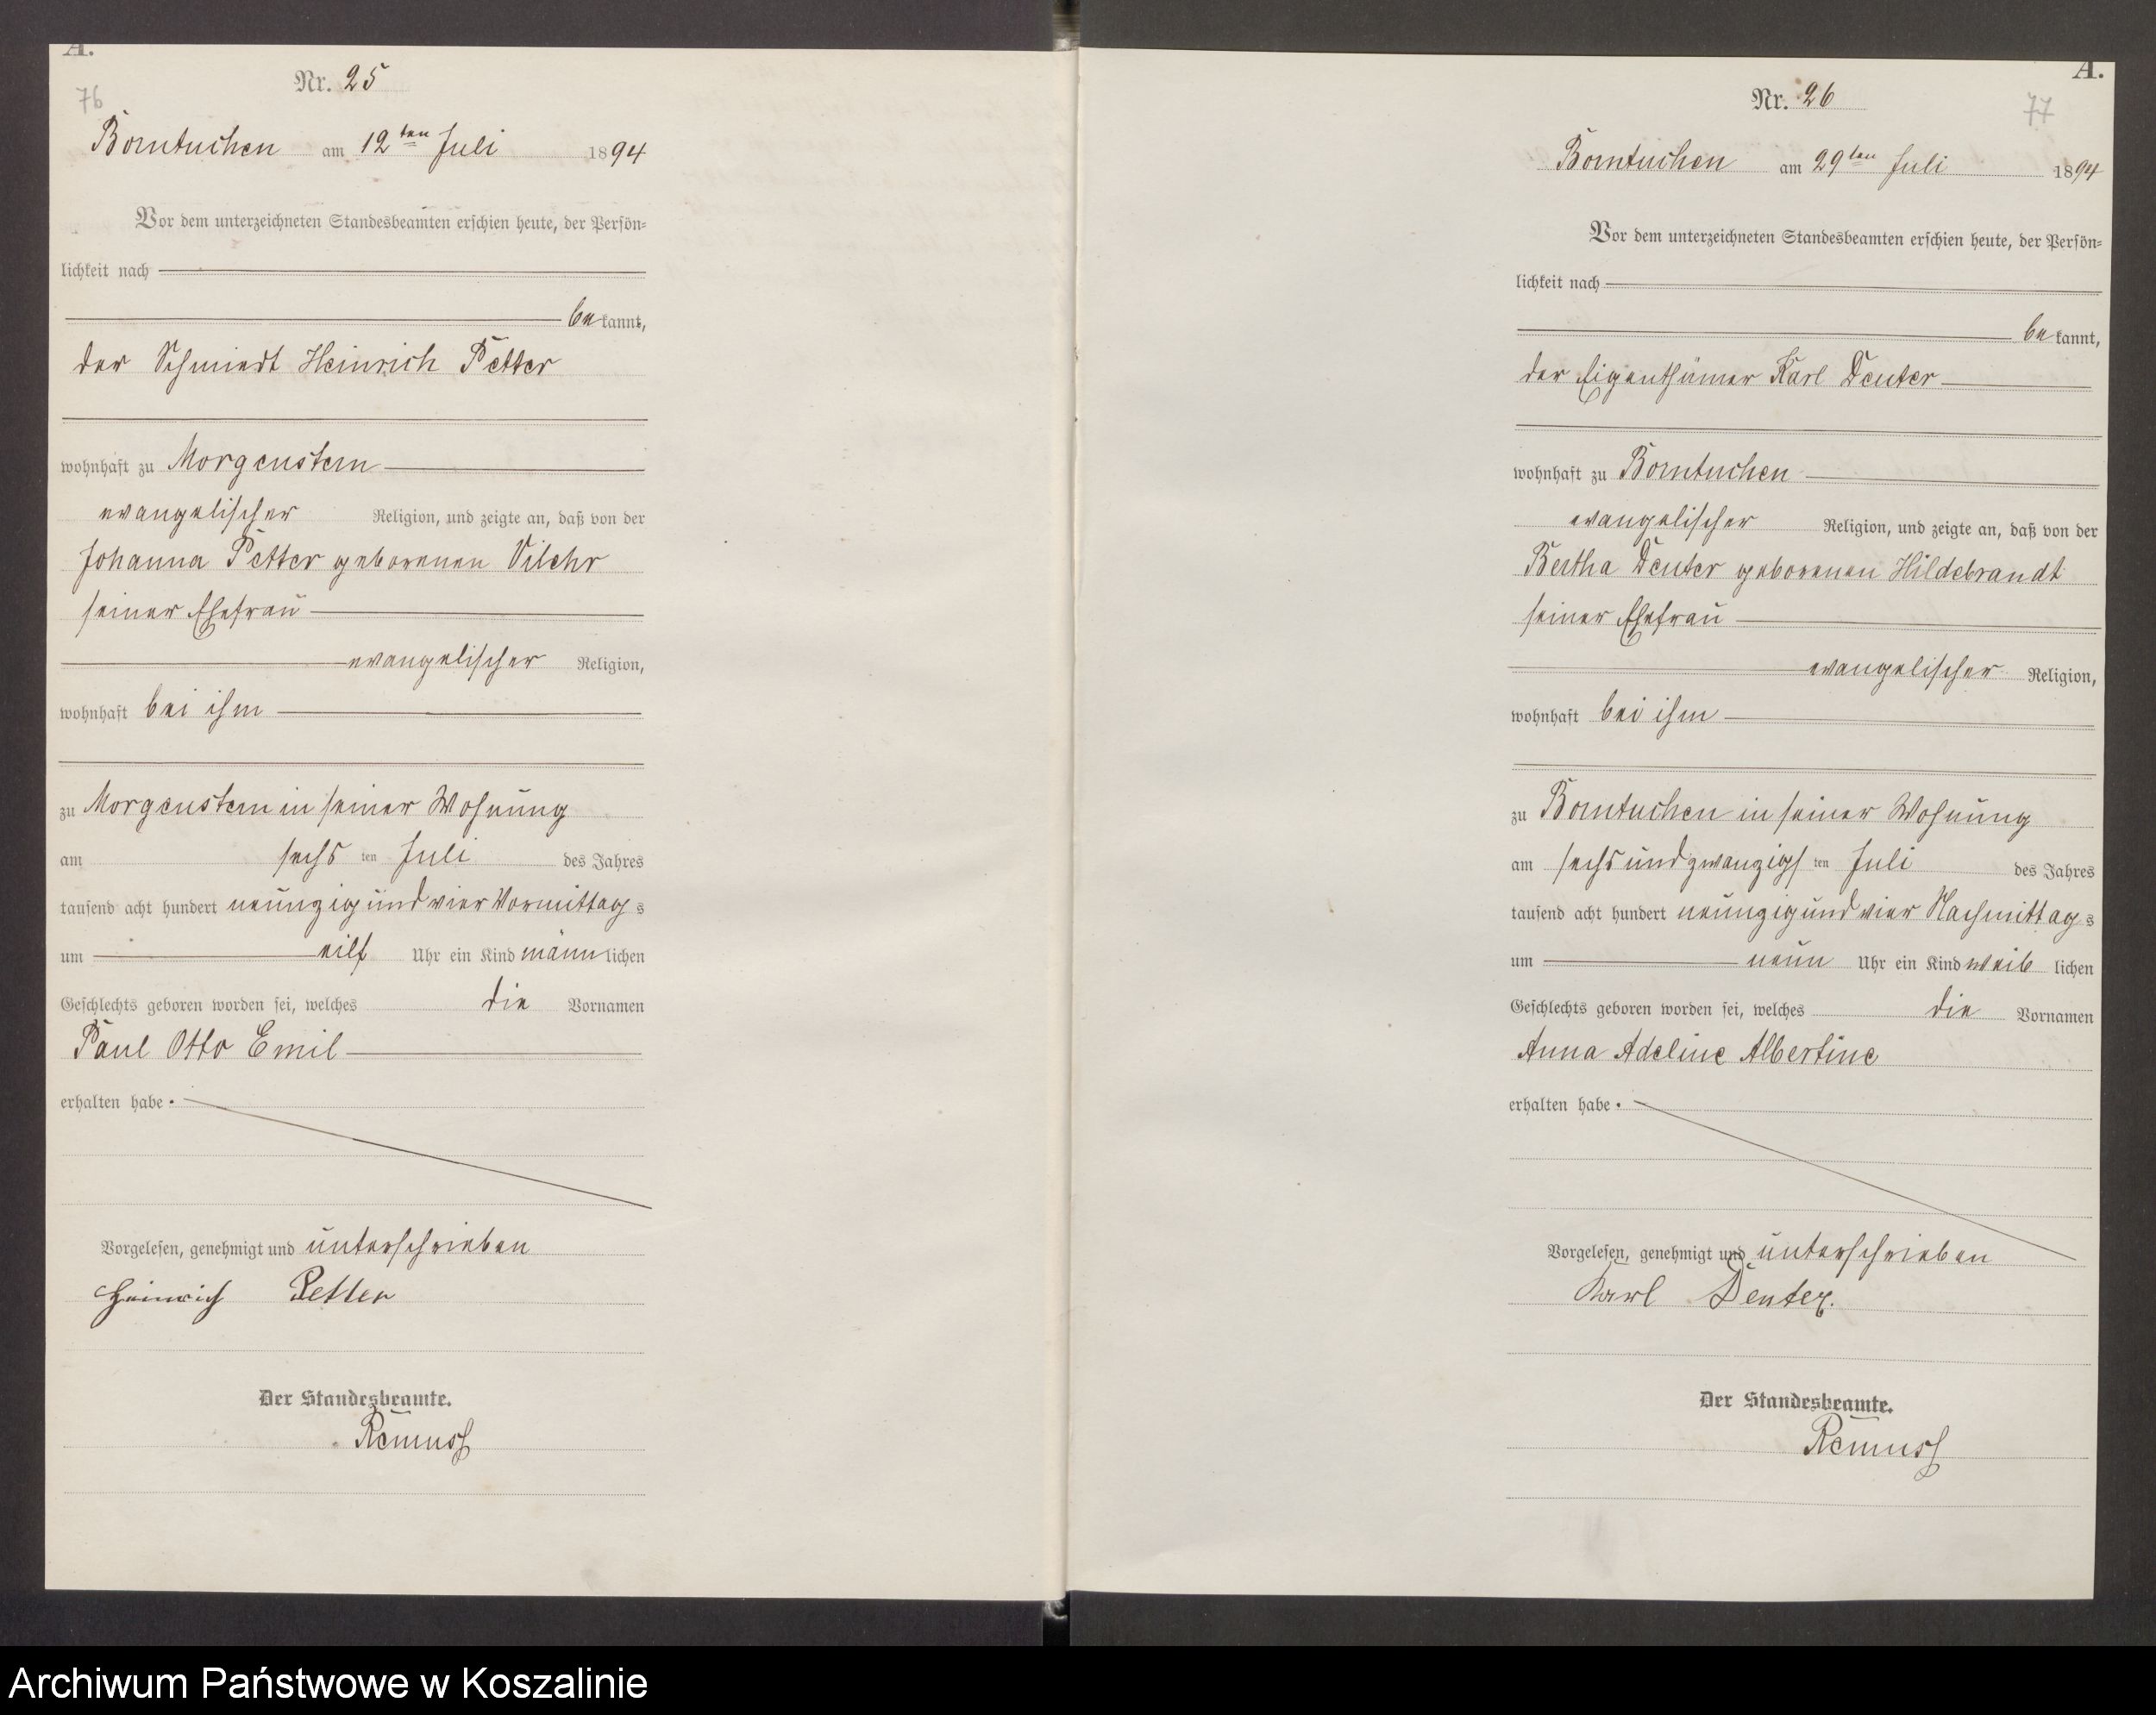 A.
Nr. 25
76
Borntuchen am 12ten Juli 1894
Vor dem unterzeichneten Standesbeamten erschien heute, der Persön-
lichkeit nach
bekannt,
der Schmiedt Heinrich Petter
wohnhaft zu Morgenstern
evangelischer Religion, und zeigte an, daß von der
Johanna Petter geborenen Vilehr
seiner Ehefrau
evangelischer Religion,
wohnhaft bei ihm
zu Morgenstern in seiner Wohnung
am sechs ten Juli des Jahres
tausend acht hundert neunzig und vier Vormittags
um eilf Uhr ein Kind männlichen
Geschlechts geboren worden sei, welches die Vornamen
Paul Otto Emil
erhalten habe.
Vorgelesen, genehmigt und unterschrieben
Heinrich Petter
Der Standesbeamte.
Remuss
A.
Nr. 26
77
Borntuchen am 29ten Juli 1894
Vor dem unterzeichneten Standesbeamten erschien heute, der Persön-
lichkeit nach
bekannt,
der Eigenthümer Karl Deuter
wohnhaft zu Borntuchen
evangelischer Religion, und zeigte an, daß von der
Bertha Deuter geborenen Hildebrandt
seiner Ehefrau
evangelischer Religion,
wohnhaft bei ihm
zu Borntuchen in seiner Wohnung
am sechsundzwanzigs ten Juli des Jahres
tausend acht hundert neunzig und vier Nachmittags
um neun Uhr ein Kind weiblichen
Geschlechts geboren worden sei, welches die Vornamen
Anna Adeline Albertine
erhalten habe.
Vorgelesen, genehmigt und unterschrieben
Karl Deuter.
Der Standesbeamte.
Remuss
Archiwum Państwowe w Koszalinie